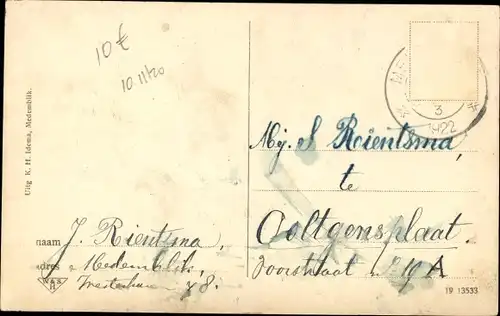 10€
10.11/20
ME
3
1922
Uitg K. H. Idema, Medemblik.
Mej. S Rientsma,
te
Ooltgensplaat.
Voorstraat 19 A
naam J. Rientsma,
adres Medemblik,
8.
N & S
H
19 13533